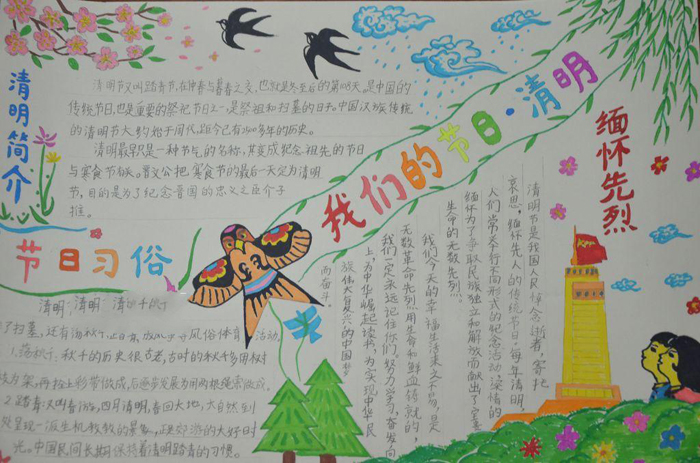 我们的节日·清明
清明简介
清明节又叫踏青节,在仲春与暮春之交,也就是冬至后的第108天,是中国的
传统节日,也是重要的祭祀节日之一,是祭祖和扫墓的日子。中国汉族传统
的清明节大约始于周代,距今已有2500多年的历史。
清明最早只是一种节气的名称,其变成纪念祖先的节日
与寒食节有关。晋文公把寒食节的最后一天定为清明
节,目的是为了纪念晋国的忠义之臣介子
推。
节日习俗
清明 清明 清明
扫墓,还有 风俗体育活动。
1.荡秋千,秋千的历史很古老,古时的秋千多用树
枝为架,再拴上彩带做成,后逐步发展为用两根绳索做成。
2.踏青又叫春游,四月清明,春回大地,大自然到
处呈现一派生机勃勃的景象,正是郊游的大好时
光。中国民间长期保持着清明踏青的习惯。
缅怀先烈
清明节是我国人民悼念逝者、寄托
哀思,缅怀先人的传统节日,每年清明,
人们常常举行不同形式的纪念活动,深情的
缅怀为了争取民族独立和解放而献出了宝贵
生命的无数先烈。
我们今天的幸福生活来之不易,是
无数革命先烈用生命和鲜血铸就的,
我们一定永远记住你们,努力学习,奋发向
上,为中华崛起读书,为实现中华民
族伟大复兴的中国梦
而奋斗。